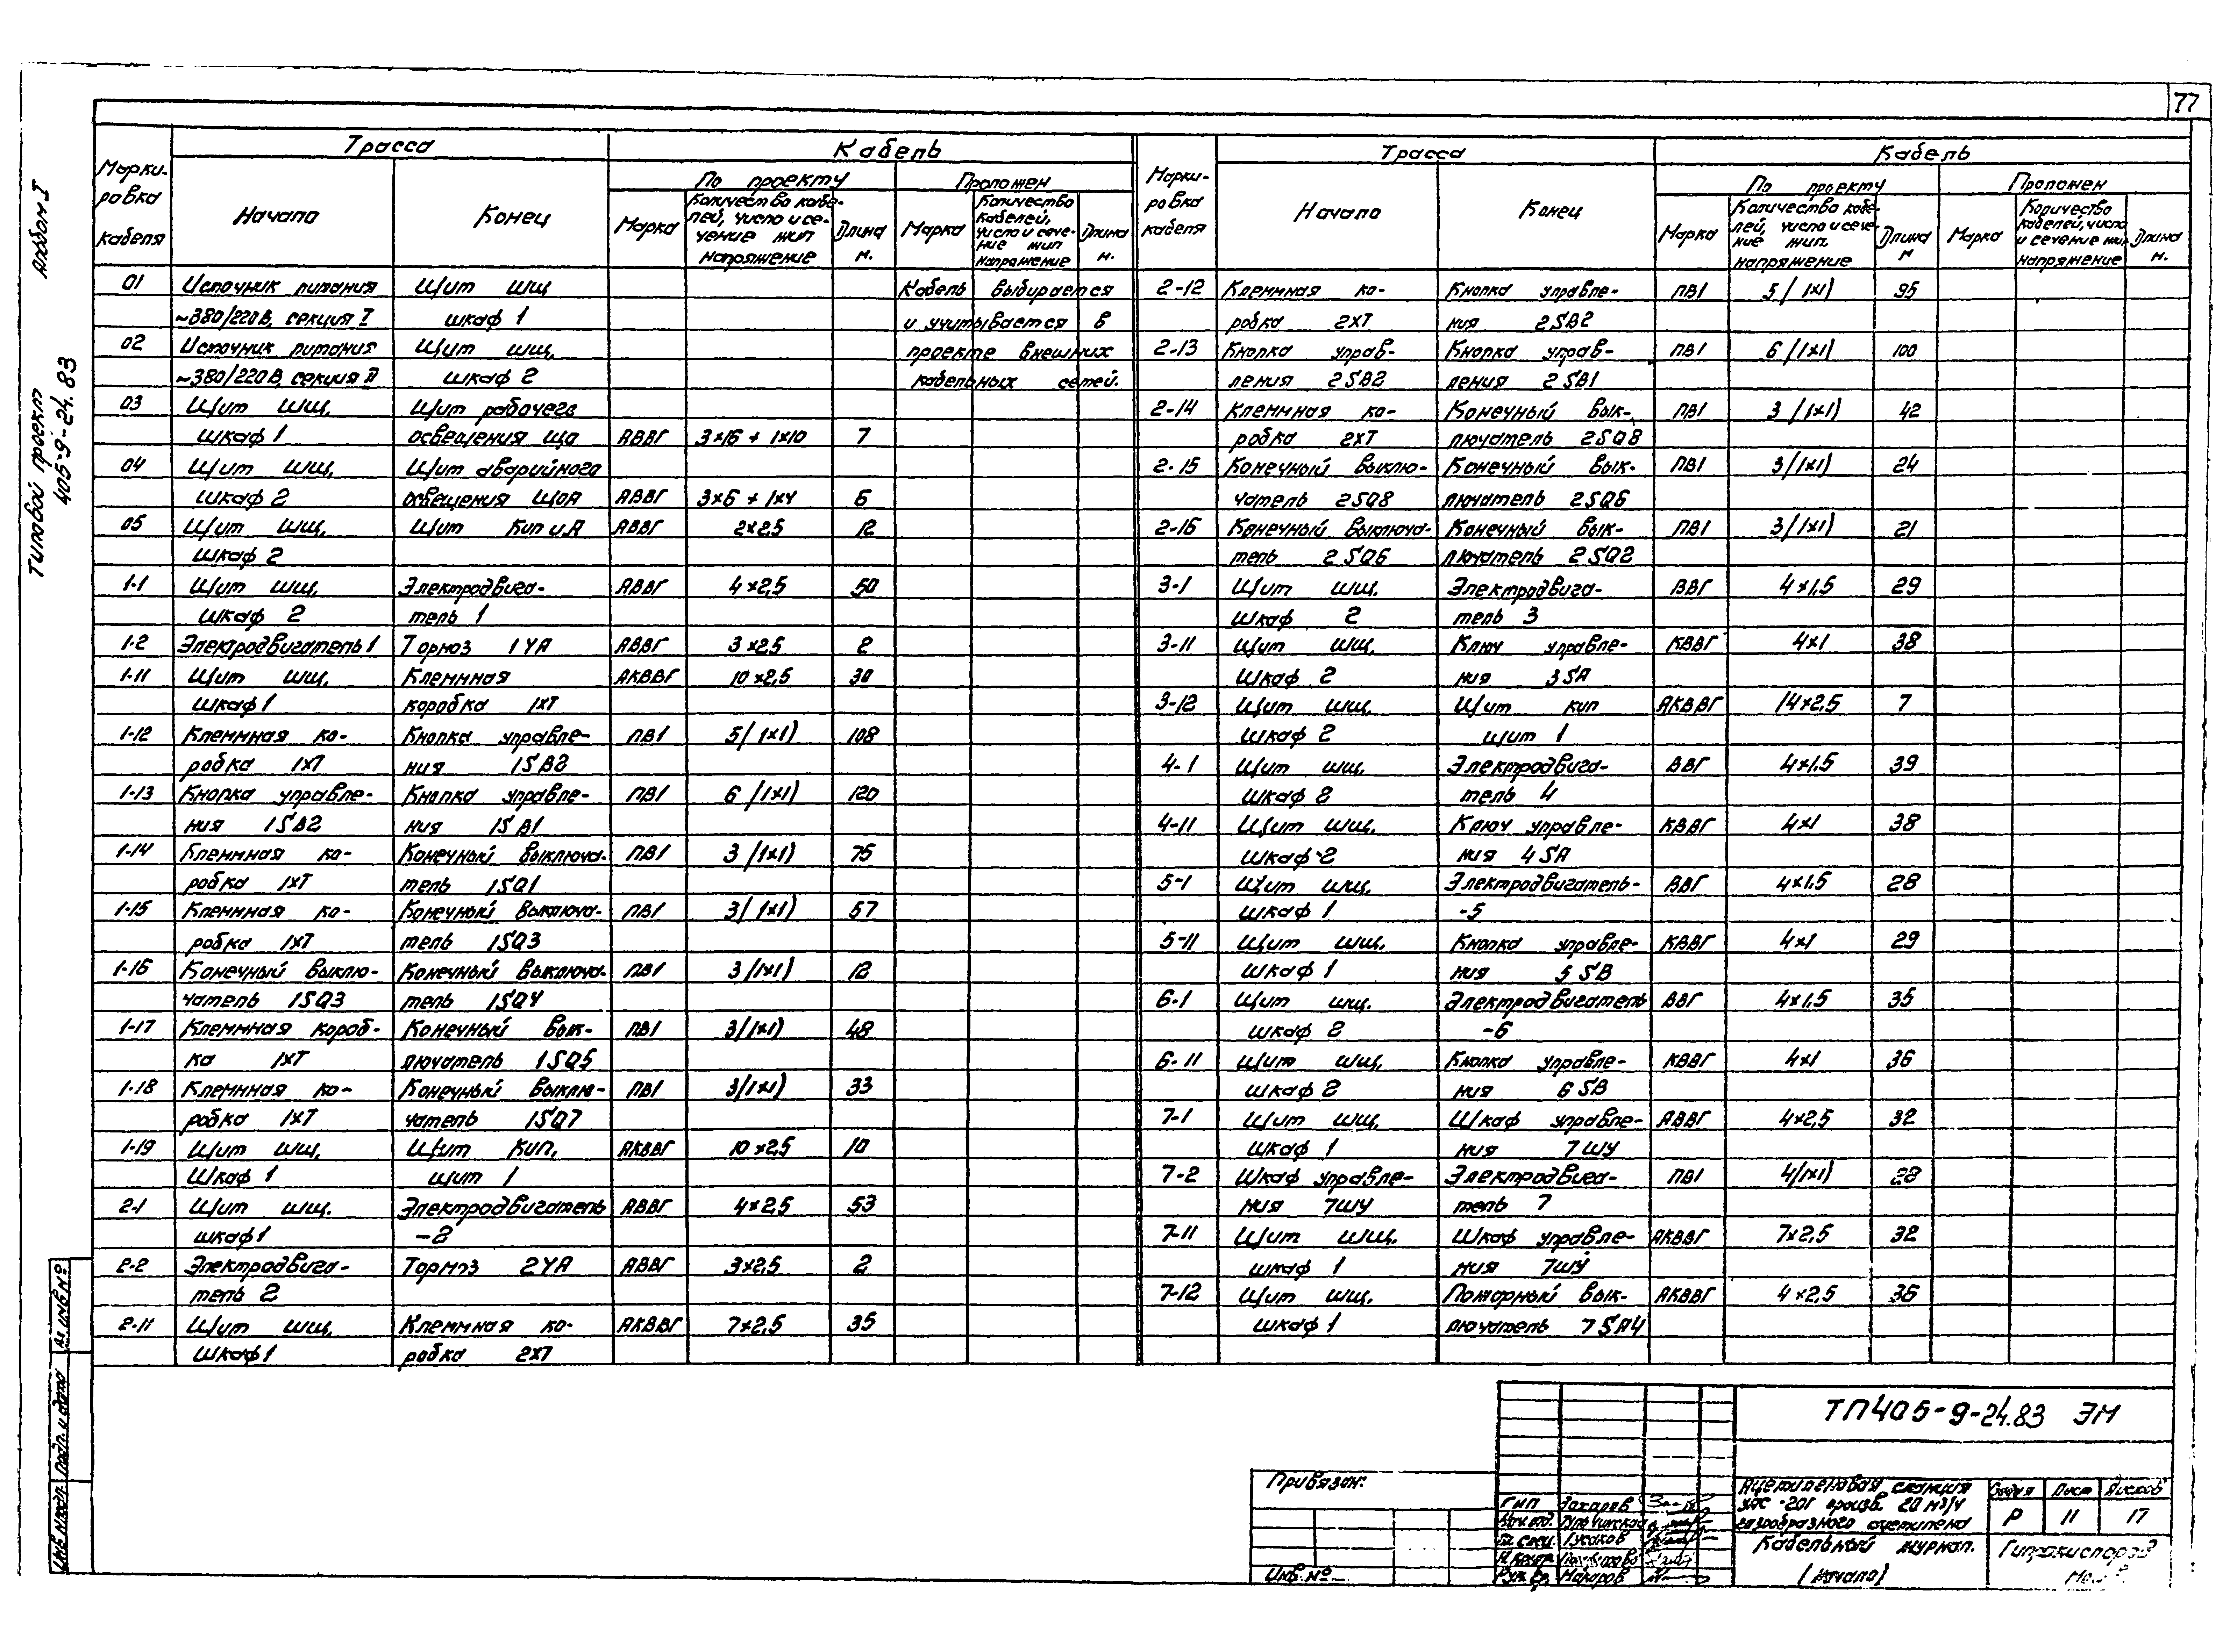 77
Альбом I
Типовой проект
405-9-24.83
Марки-
ровка
кабеля
Трасса
Кабель
Начало
Конец
По проекту
Проложен
Марка
Количество кабе-
лей, число и се-
чение жил
напряжение
Длина
м.
Марка
Количество
кабелей,
число и сече-
ние жил
напряжение
Длина
м.
01 Источник питания Щит ШЩ Кабель выбирается
~380/220В, секция I шкаф 1 и учитывается в
02 Источник питания Щит ШЩ. проекте внешних
~380/220В, секция II шкаф 2 кабельных сетей.
03 Щит ШЩ. Щит рабочего
шкаф 1 освещения ЩО АВВГ 3×16 + 1×10 7
04 Щит ШЩ. Щит аварийного
шкаф 2 освещения ЩОА АВВГ 3×6 + 1×4 6
05 Щит ШЩ. Щит КИП и А АВВГ 2×2,5 12
шкаф 2
1-1 Щит ШЩ. Электродвига- АВВГ 4×2,5 50
шкаф 2 тель 1
1-2 Электродвигатель 1 Тормоз 1YA АВВГ 3×2,5 2
1-11 Щит ШЩ. Клеммная АКВВГ 10×2,5 30
шкаф 1 коробка 1XT
1-12 Клеммная ко- Кнопка управле- ПВ1 5/1×1) 108
робка 1XT ния 1SB2
1-13 Кнопка управле- Кнопка управле- ПВ1 6/1×1) 120
ния 1SB2 ния 1SB1
1-14 Клеммная ко- Конечный выключа- ПВ1 3/1×1) 75
робка 1XT тель 1SQ1
1-15 Клеммная ко- Конечный выключа- ПВ1 3/1×1) 57
робка 1XT тель 1SQ3
1-16 Конечный выклю- Конечный выключа- ПВ1 3/1×1) 12
чатель 1SQ3 тель 1SQ4
1-17 Клеммная короб- Конечный вык- ПВ1 3/1×1) 48
ка 1XT лючатель 1SQ5
1-18 Клеммная ко- Конечный выклю- ПВ1 3/1×1) 33
робка 1XT чатель 1SQ7
1-19 Щит ШЩ. Щит КИП. АКВВГ 10×2,5 10
Шкаф 1 щит 1
2-1 Щит ШЩ. Электродвигатель АВВГ 4×2,5 53
шкаф 1 -2
2-2 Электродвига- Тормоз 2YA АВВГ 3×2,5 2
тель 2
2-11 Щит ШЩ. Клеммная ко- АКВВГ 7×2,5 35
шкаф 1 робка 2XT
Марки-
ровка
кабеля
Трасса
Кабель
Начало
Конец
По проекту
Проложен
Марка
Количество кабе-
лей, число и сече-
ние жил.
напряжение
Длина
м
Марка
Количество
кабелей, число
и сечение жил
напряжение
Длина
м.
2-12 Клеммная ко- Кнопка управле- ПВ1 5/1×1) 95
робка 2XT ния 2SB2
2-13 Кнопка управ- Кнопка управ- ПВ1 6/1×1) 100
ления 2SB2 ления 2SB1
2-14 Клеммная ко- Конечный вык- ПВ1 3/1×1) 42
робка 2XT лючатель 2SQ8
2-15 Конечный выклю- Конечный вык- ПВ1 3/1×1) 24
чатель 2SQ8 лючатель 2SQ6
2-16 Конечный выключа- Конечный вык- ПВ1 3/1×1) 21
тель 2SQ6 лючатель 2SQ2
3-1 Щит ШЩ. Электродвига- ВВГ 4×1,5 29
шкаф 2 тель 3
3-11 Щит ШЩ. Ключ управле- КВВГ 4×1 38
шкаф 2 ния 3SA
3-12 Щит ШЩ. Щит КИП АКВВГ 14×2,5 7
шкаф 2 щит 1
4-1 Щит ШЩ. Электродвига- ВВГ 4×1.5 39
шкаф 2 тель 4
4-11 Щит ШЩ. Ключ управле- КВВГ 4×1 38
шкаф 2 ния 4SA
5-1 Щит ШЩ. Электродвигатель- ВВГ 4×1.5 28
шкаф 1 -5
5-11 Щит ШЩ. Кнопка управле- КВВГ 4×1 29
шкаф 1 ния 5SB
6-1 Щит ШЩ. Электродвигатель ВВГ 4×1,5 35
шкаф 2 -6
6-11 Щит ШЩ. Кнопка управле- КВВГ 4×1 36
шкаф 2 ния 6SB
7-1 Щит ШЩ. Шкаф управле- АВВГ 4×2,5 32
шкаф 1 ния 7ШУ
7-2 Шкаф управле- Электродвига- ПВ1 4/1×1)
ния 7ШУ тель 7
7-11 Щит ШЩ. Шкаф управле- АКВВГ 7×2,5 32
шкаф 1 ния 7ШУ
7-12 Щит ШЩ. Пожарный вык- АКВВГ 4×2,5 36
шкаф 1 лючатель 7SA4
Взам инв №
Подп. и дата
Инв. № подл.
Привязан:
Инв. №
ТП405-9-24.83 ЭМ
ГИП Захаров
Нач. отд.
Гл. спец. Гусаков
Н. контр.
Рук. гр. Макаров
Ацетиленовая станция
произв. 20 м3/ч
газообразного ацетилена
Стадия Лист Листов
Р 11 17
Кабельный журнал.
(начало)
Гипрокислород